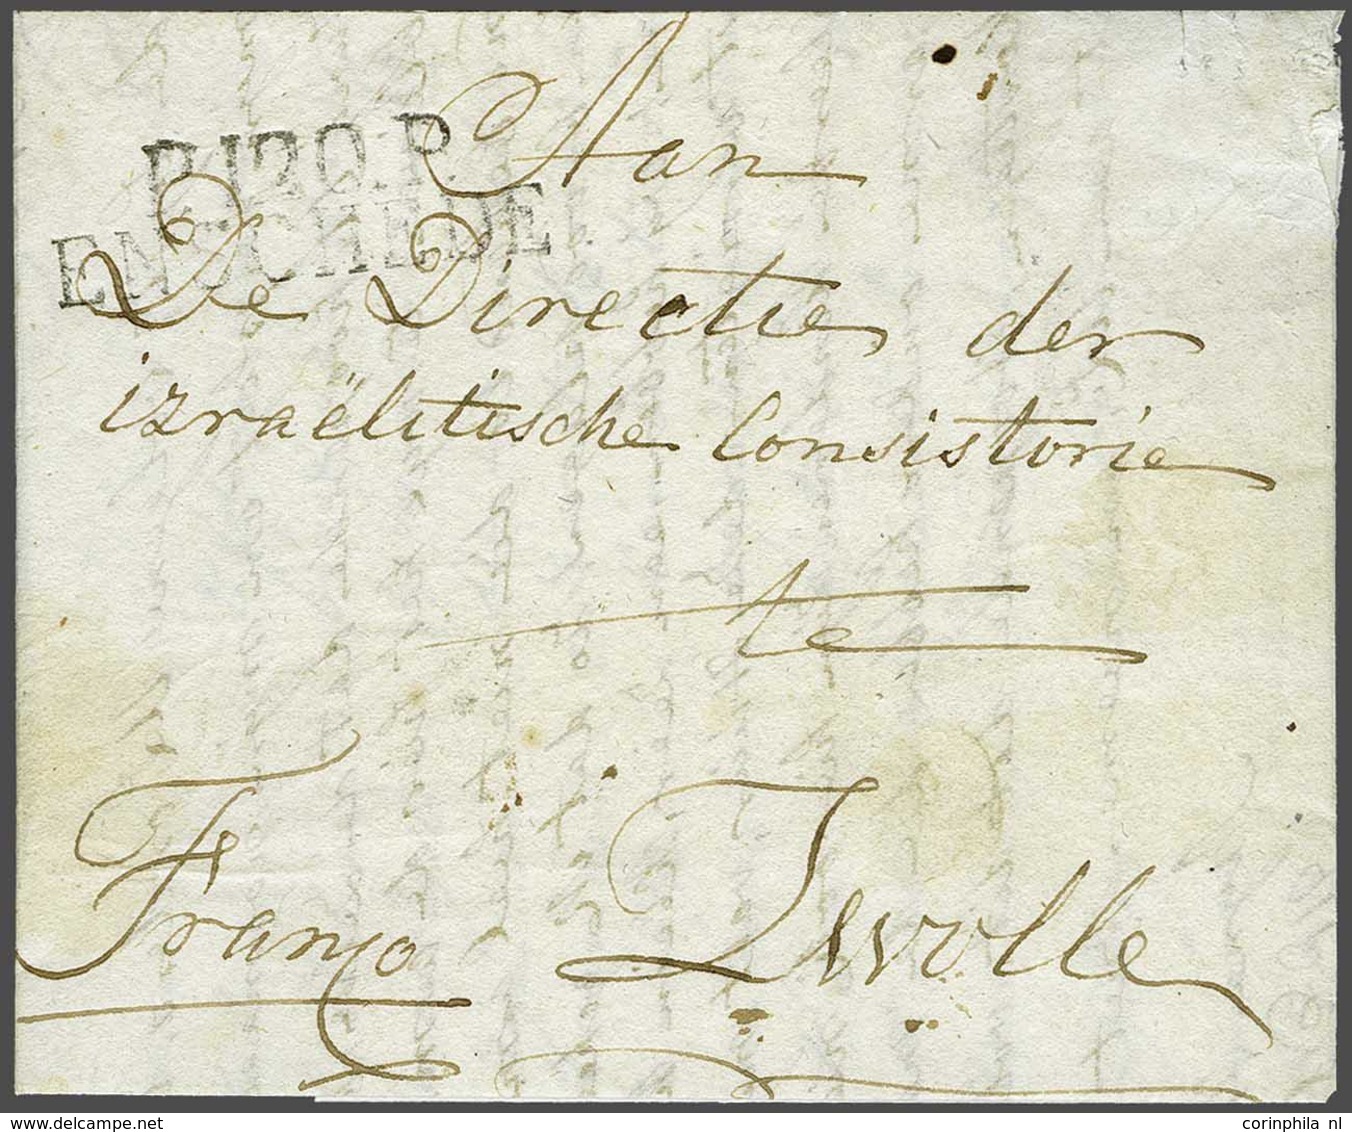 P.120.P.
ENSCHEDE
Aan
De Directie der
izraëlitische Consistorie
te
Zwolle
Franco
delcampe.net
corinphila nl